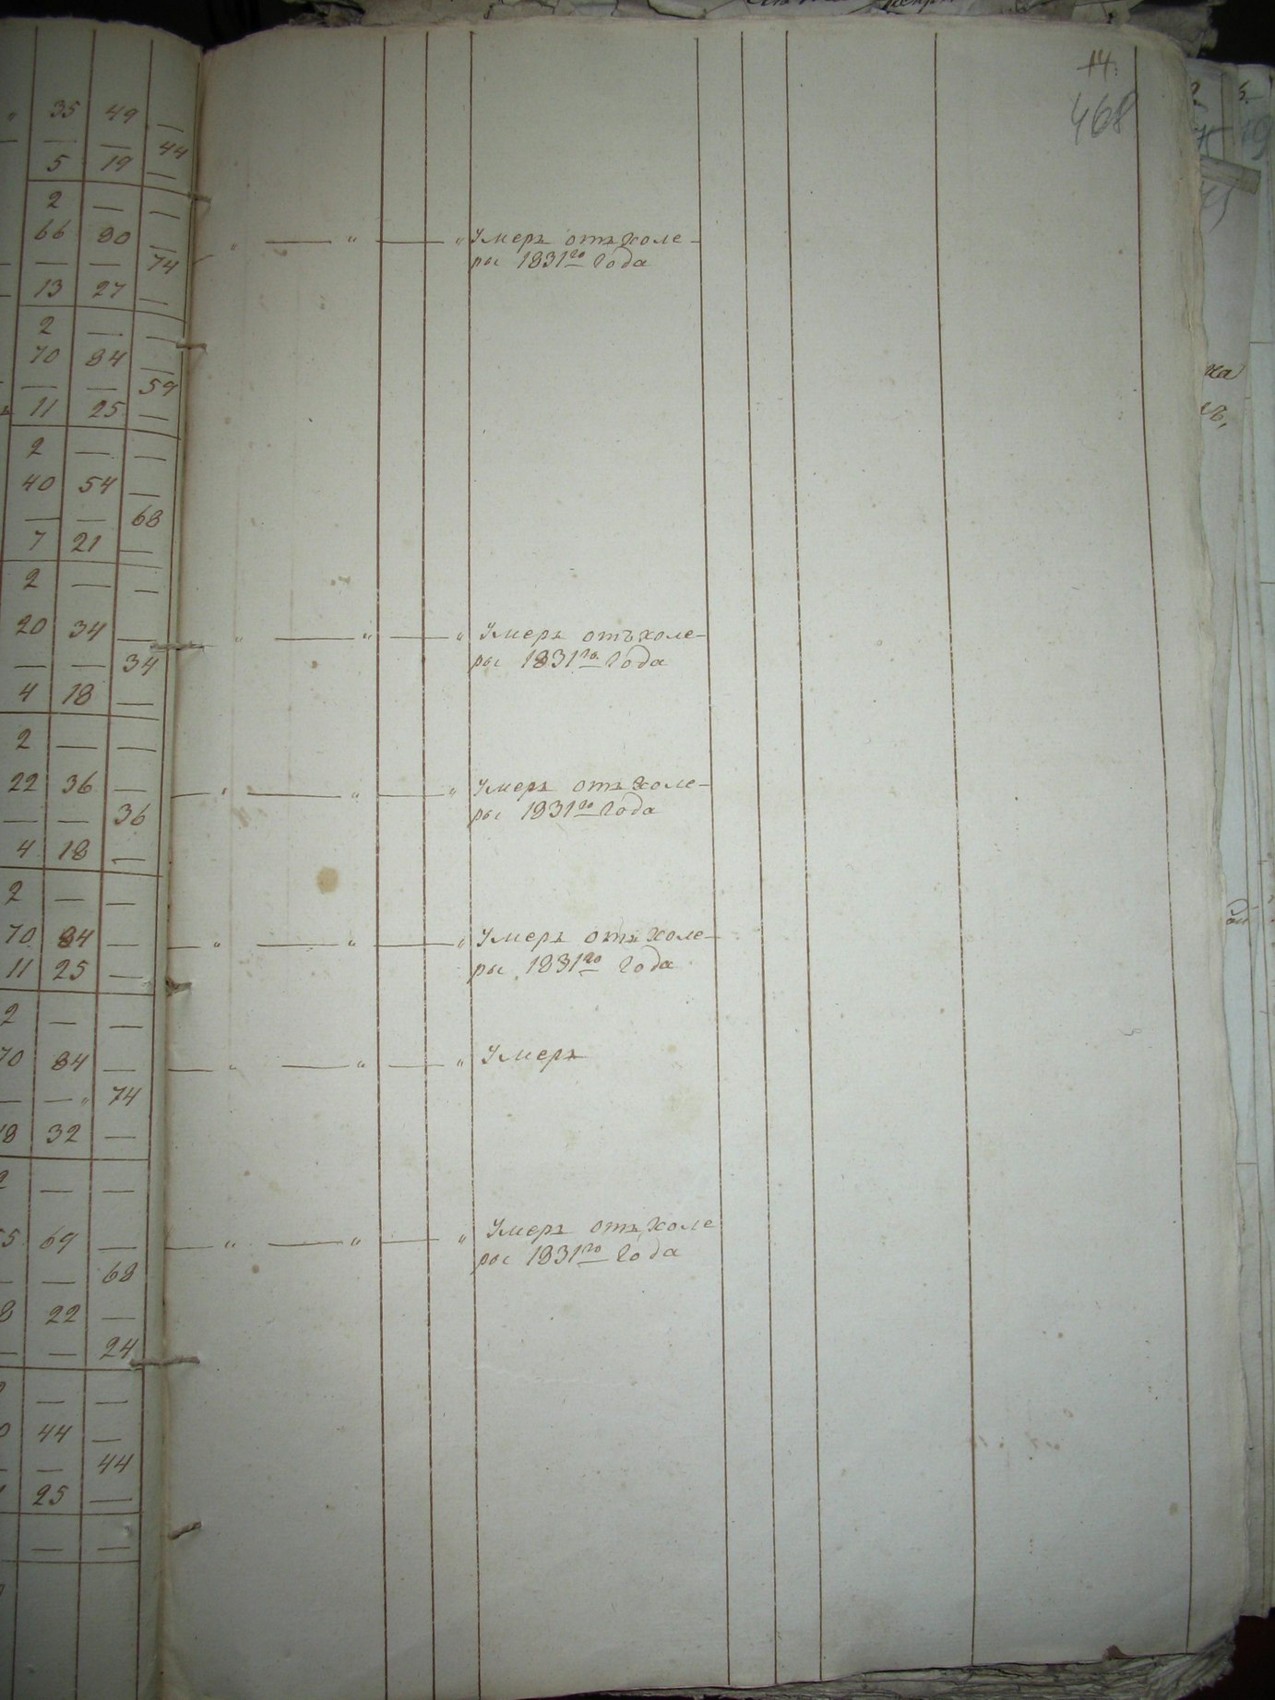 14.
468
35 49 —
— — 44
5 19 —
2 — —
66 80 —
— — 74
13 27 —
2 — —
70 84 —
— — 59
11 25 —
2 — —
40 54 —
— — 68
7 21 —
2 — —
20 34 —
— — 34
4 18 —
2 — —
22 36 —
— — 36
4 18 —
2 — —
70 84 —
11 25 —
2 — —
70 84 —
— — 74
18 32 —
— —
69 —
— — 68
8 22 —
— — 24
— —
44 —
— 44
25 —
— —
Умеръ отъ холе-
ры 1831го года
Умеръ отъ холе-
ры 1831го года
Умеръ отъ холе-
ры 1831го года
Умеръ отъ холе-
ры 1831го года
Умеръ
Умеръ отъ холе
ры 1831го года